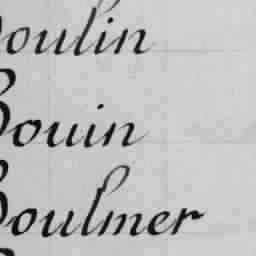 Poulin
Bouin
Boulmer